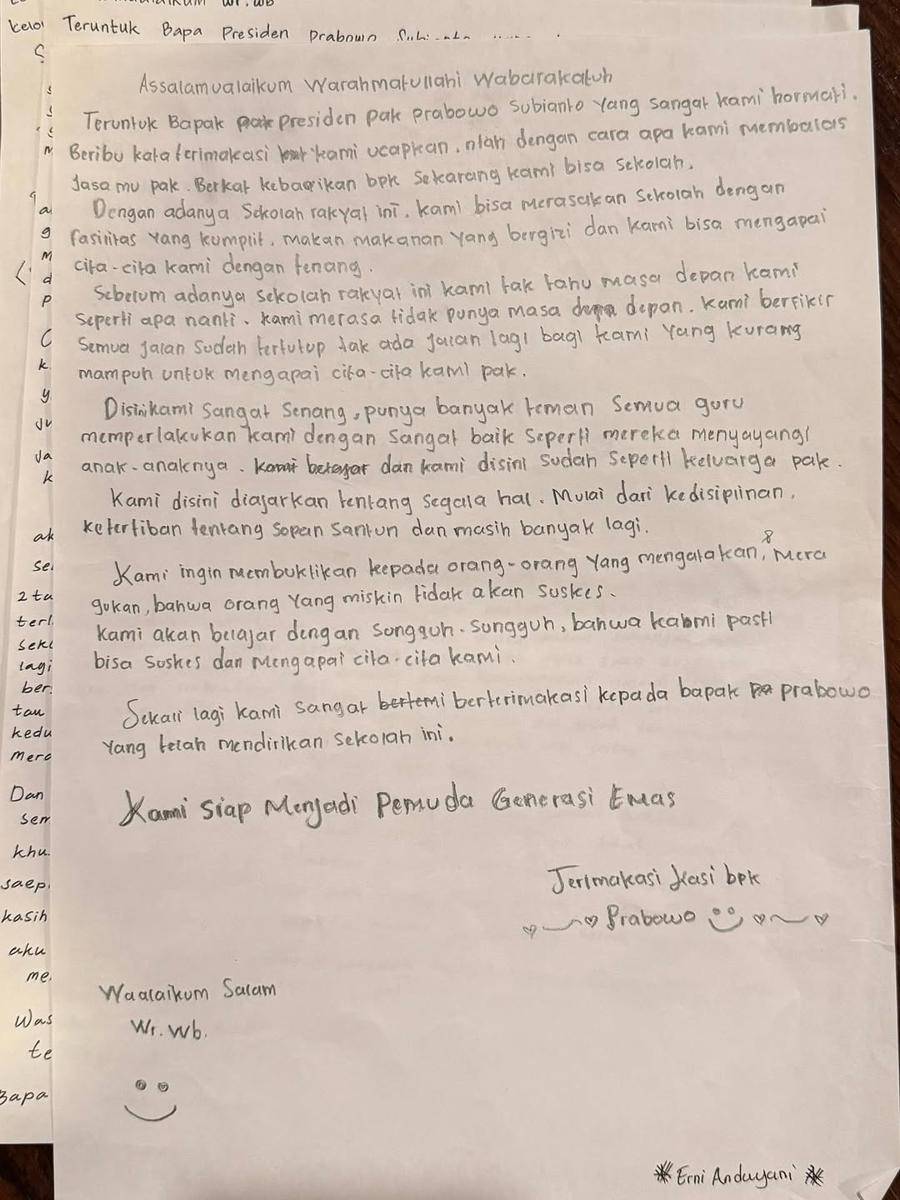 Teruntuk Bapa Presiden Prabowo
Assalamualaikum Warahmatullahi Wabarakatuh
Teruntuk Bapak pak presiden pak prabowo subianto yang sangat kami hormati.
Beribu kata terimakasi kami ucapkan. ntah dengan cara apa kami membalas
Jasa mu pak. Berkat kebaikan bpk sekarang kami bisa sekolah.
Dengan adanya sekolah rakyat ini. kami bisa merasakan sekolah dengan
fasilitas yang kumplit. makan makanan yang bergizi dan kami bisa mengapai
cita-cita kami dengan tenang.
Sebelum adanya sekolah rakyat ini kami tak tahu masa depan kami
seperti apa nanti. kami merasa tidak punya masa depan. kami berfikir
semua jalan sudah tertutup tak ada jalan lagi bagi kami yang kurang
mampuh untuk mengapai cita-cita kami pak.
Disini kami sangat senang, punya banyak teman semua guru
memperlakukan kami dengan sangat baik seperti mereka menyayangi
anak-anaknya. kami belajar dan kami disini sudah seperti keluarga pak.
Kami disini diajarkan tentang segala hal. Mulai dari kedisiplinan.
ketertiban tentang sopan santun dan masih banyak lagi.
Kami ingin membuktikan kepada orang-orang yang mengatakan, & Mera
gukan, bahwa orang yang miskin tidak akan suskes.
kami akan belajar dengan sungguh-sungguh, bahwa kabmi pasti
bisa suskes dan mengapai cita-cita kami.
Sekali lagi kami sangat bertemi berterimakasi kepada bapak pa prabowo
yang telah mendirikan sekolah ini.
Kami Siap Menjadi Pemuda Generasi Emas
Terimakasi kasi bpk
Prabowo
Waalaikum Salam
Wr. Wb.
Erni Andayani